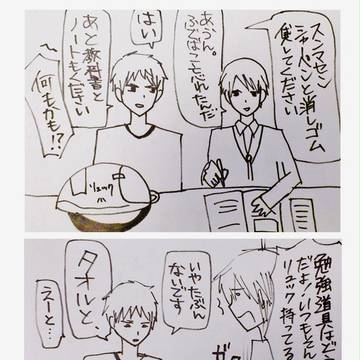 スンマセン
シャーペンと消しゴム
貸してください
あ、うん。
ふでばこ忘れたんだ
はい
あと教科書と
ノートもください
何もかも!?
リュック
勉強道具はど
だよ いつもそん
リュック持って
ガ
いやたぶん
ないです
タオルと、
えーと…